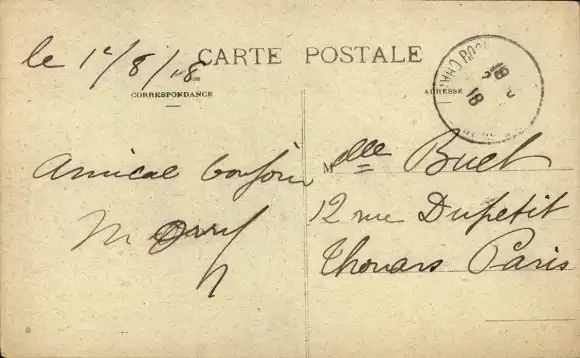 le 12/8/18
CARTE POSTALE
CORRESPONDANCE
ADRESSE
18
Amical bonjour
M
Mlle Buet
12 rue Dupetit
Thouars Paris